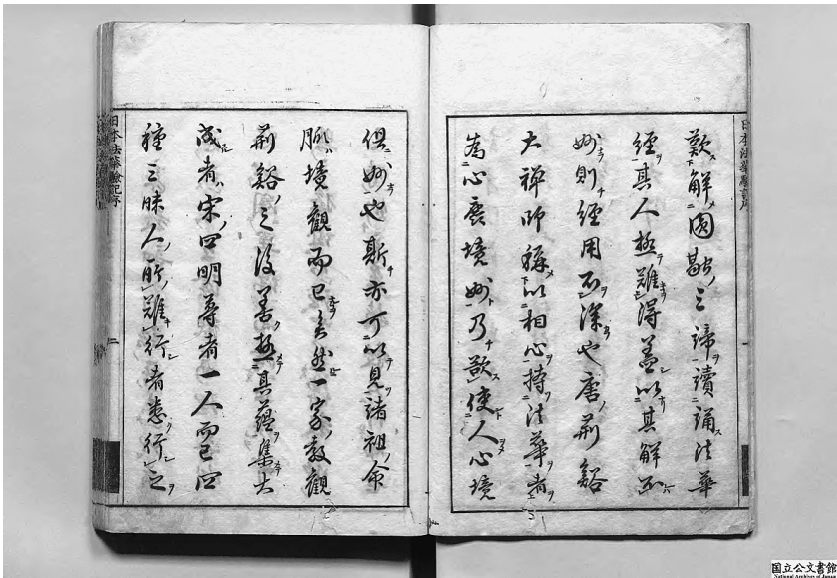 日本法華驗記序
一
歎解圓融ノ三諦讀誦法華
經其人極難得蓋以其解不
妙則經用不深也唐ノ荊谿
大禅師稱以相心持法華者
為心麁境妙乃欲使人心境
俱妙也斯亦可以見諸祖ノ命
脈境觀而已矣然一家ノ教觀
荊谿之後善極其蘊集大
成者宋ノ四明尊者一人而已四
種三昧人ノ所難行者悉行之
日本法華驗記序
二
国立公文書館
National Archives of Japan